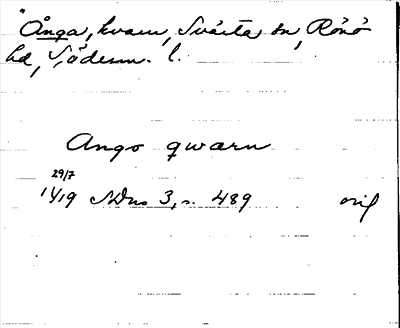 "Ånga, kvarn, Svärta sn, Rönö
hd, Söderm. l.
Ango qwarn
29/7
1419 SDns 3, s. 489 orig